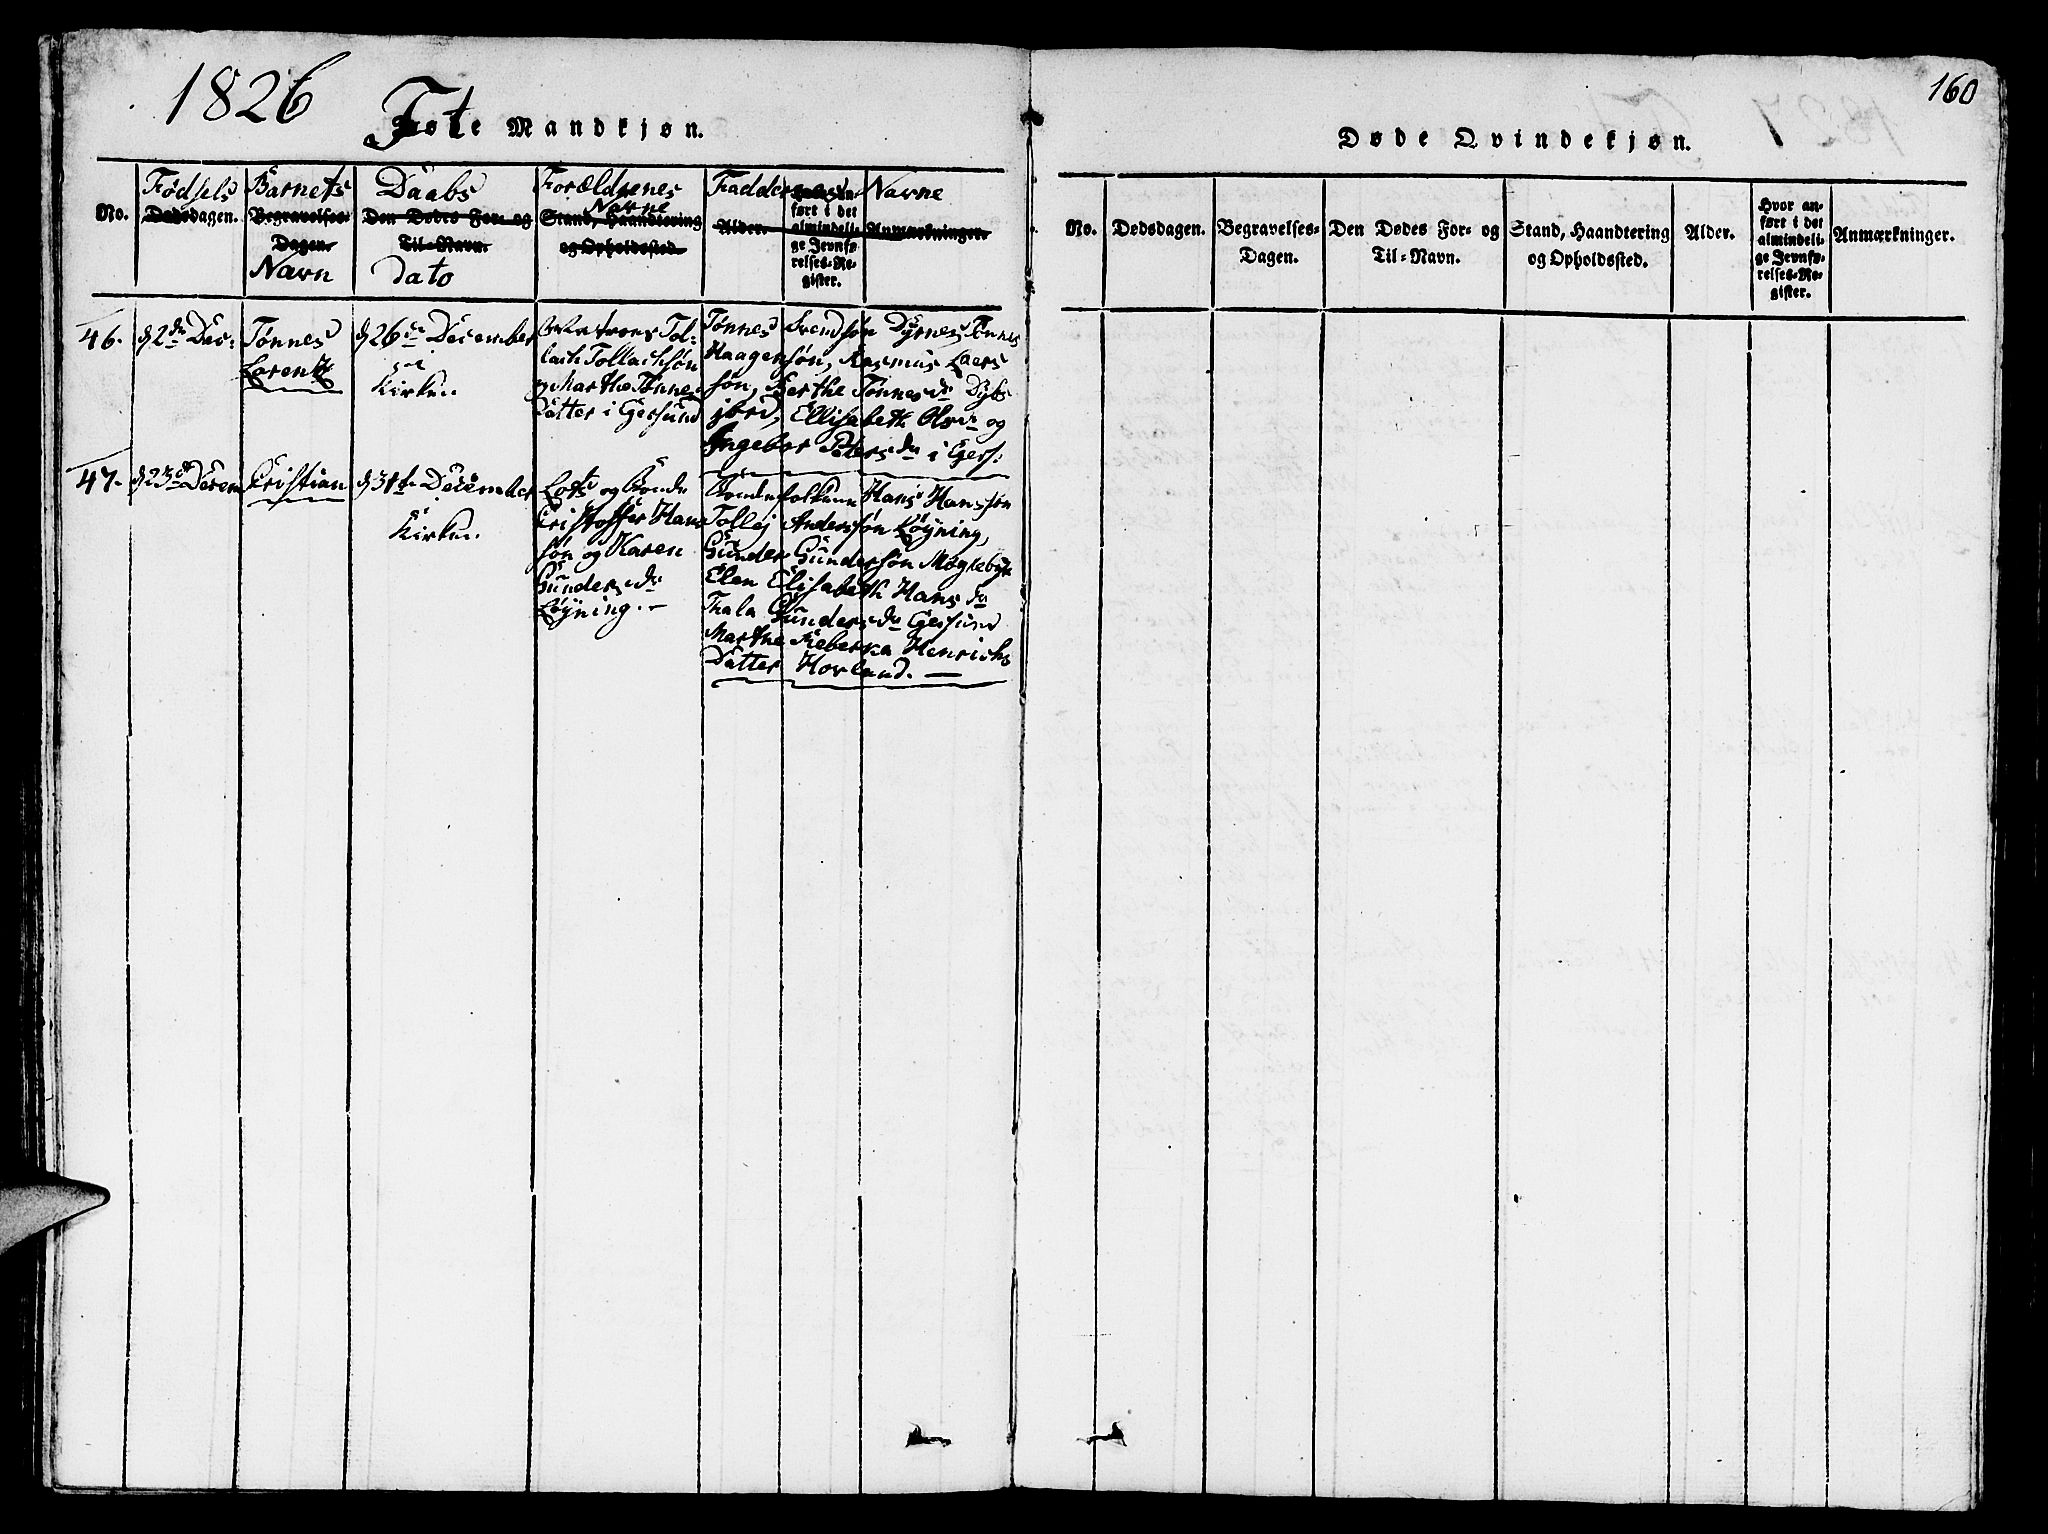 1826
Føte Mandkjøn.
No.
Fødsels
Dødsdagen.
Barnets
Begravelses-
Dagen.
Navn
Daabs
Den Dødes For- og
Til-Navn.
Dato
Forældrenes
Navne
Stand, Haandtering
og Opholdssted.
Faddernes Navne
Alder.
fort i det
almindeli-
ge Jevnfø-
relses-Re-
gister.
Anmærkninger.
46.
d 2de Dec:
Tønnes
Lorentz
d 26de December
i
Kirken.
Tol-
lach Tollachsøn
og Marthe Tønnes
Datter i Gersund
Tønnes Svendsøn Dyrnes, Tønnes
Haagensøn, Rasmus Laers
søn, Berthe Tønnesdr
Ellisabeth Olsdr og
Ingebor Petersdr i Gers:
47.
d 23de Decem
Cristian
d 31te December
Kirken.
Lots og Bonde
Cristoffer Hans
søn og Karen
Gundersdr
Løyning.
Bondefolkene Hans Hanssøn
Tollej Anderssøn Løyning,
Gunder Gundersøn Møglebye
Elen Elisabeth Hansdr
Thala Gundersdr Gersund
Marthe Rebekka Henrichs
Datter Hovland.
160
Døde Qvindekjøn.
No.
Dødsdagen.
Begravelses-
Dagen.
Den Dødes For- og
Til-Navn.
Stand, Haandtering
og Opholdssted.
Alder.
Hvor an-
ført i det
almindeli-
ge Jevnfø-
relses-Re-
gister.
Anmærkninger.